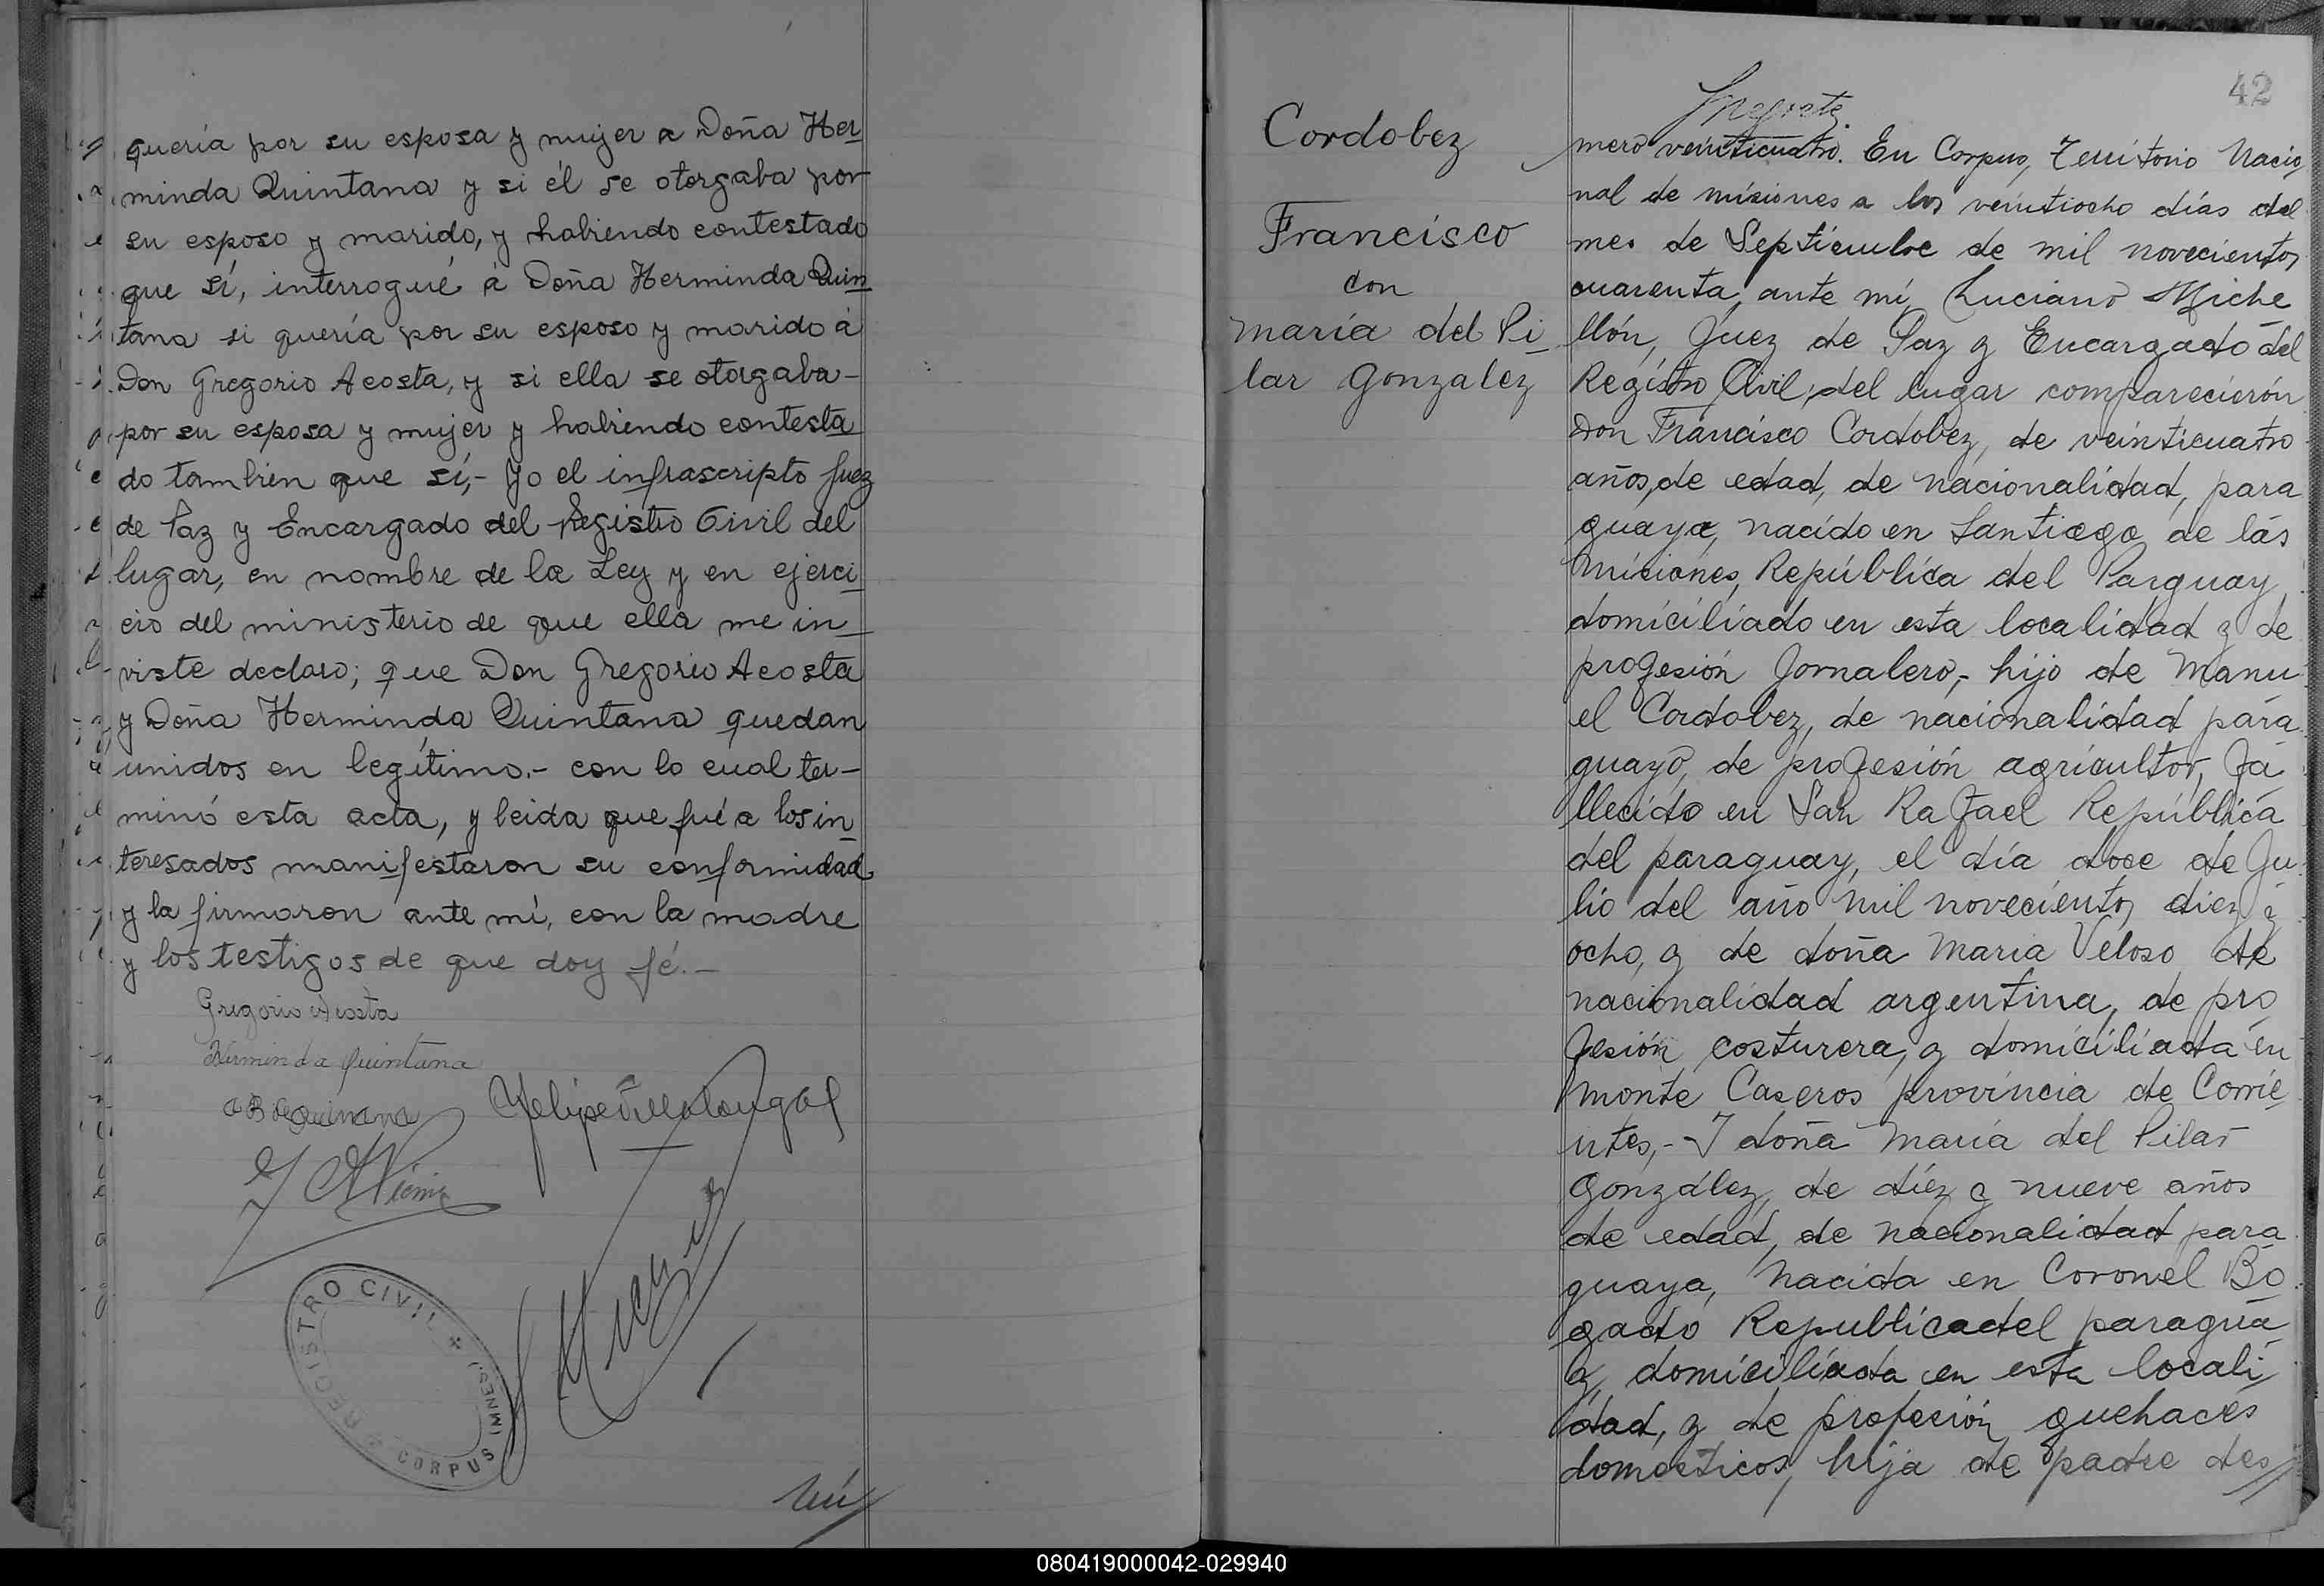 quería por su esposa y mujer a Doña Her
minda Quintana y si él se otorgaba por
su esposo y marido, y habiendo contestado
que sí, interrogué á Doña Herminda Quin
tana si quería por su esposo y marido á
Don Gregorio Acosta, y si ella se otorgaba-
por su esposa y mujer y habiendo contesta
do tambien que sí,- Yo el infrascripto Juez
de Paz y Encargado del Registro Civil del
lugar, en nombre de la Ley y en ejerci
cio del ministerio de que ella me in
viste declaro; que Don Gregorio Acosta
y Doña Herminda Quintana quedan
unidos en legítimo.- con lo cual ter-
minó esta acta, y leida que fué a los in
teresados manifestaron su conformidad
y la firmaron ante mí, con la madre
y los testigos de que doy fé.-
Gregorio Acosta
Herminda Quintana
REGISTRO CIVIL
CORPUS (MNES)
Nú
42
Cordobez
Francisco
con
maría del Pi
lar Gonzalez
mero veinticuatro. En Corpus, Territorio Nacio
nal de misiones a los veintiocho días del
mes de Septiembre de mil novecientos
cuarenta, ante mí, Luciano Miche
llón, Juez de Paz y Encargado del
Registro Civil, del lugar comparecierón
Don Francisco Cordobez, de veinticuatro
años, de edad, de nacionalidad, para
guaya, nacido en Santiago de las
misiones, República del Parguay,
domiciliado en esta localidad y de
profesión Jornalero,- hijo de Manu
el Cordobez, de nacionalidad para
guayo, de profesión agricultor, fa
llecido en San Rafael República
del paraguay, el día doce de Ju
lio del año mil novecientos diez y
ocho, y de doña maria Veloso de
nacionalidad argentina, de pro
fesión costurera, y domiciliada en
monte Caseros provincia de Corrie
ntes,- Y doña maría del Pilar
González, de diéz y nueve años
de edad, de nacionalidad para
guaya, nacida en Coronel Bo
gado Republica del paragua
y, domiciliada en esta locali
dad, y de profesión quehaces
domesticos, hija de padre des
080419000042-029940